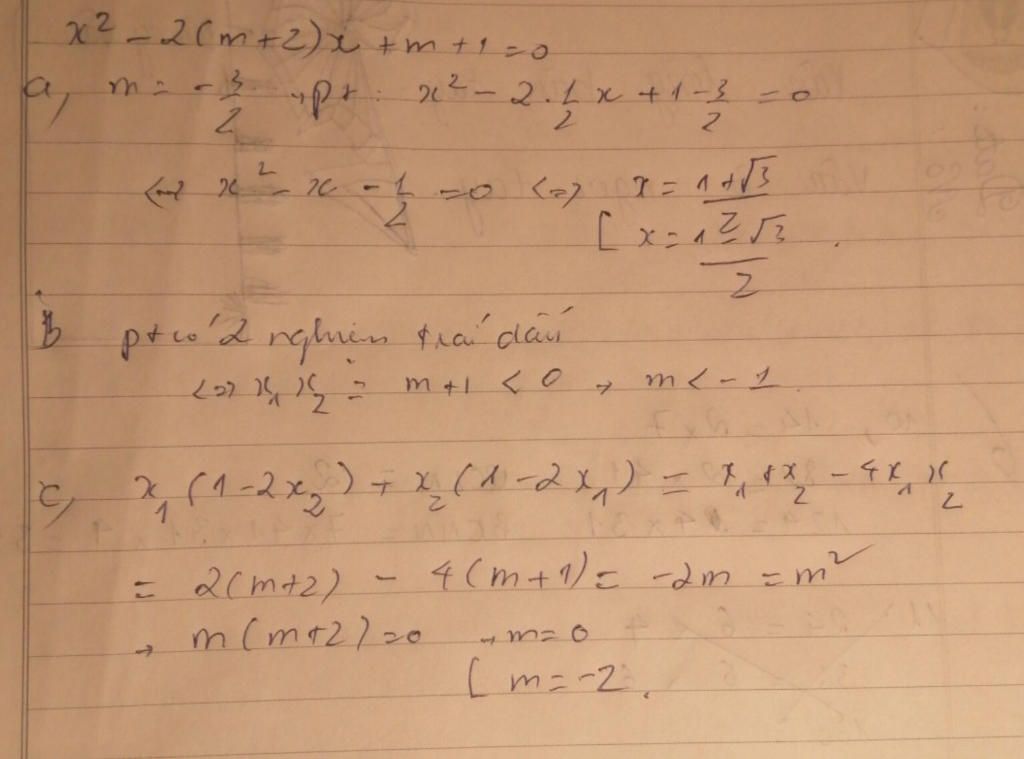 x² - 2(m+2)x + m + 1 = 0
a, m = -3/2 → pt : x² - 2.1/2 x + 1 - 3/2 = 0
<=> x² - x - 1/2 = 0 <=> [ x = (1+√3)/2
x = (1-√3)/2 .
b pt có 2 nghiệm trái dấu
<=> x₁x₂ = m+1 < 0 → m < -1.
c, x₁(1-2x₂) + x₂(1-2x₁) = x₁+x₂ - 4x₁x₂
= 2(m+2) - 4(m+1) = -2m = m²
→ m(m+2) = 0 → [ m = 0
m = -2.